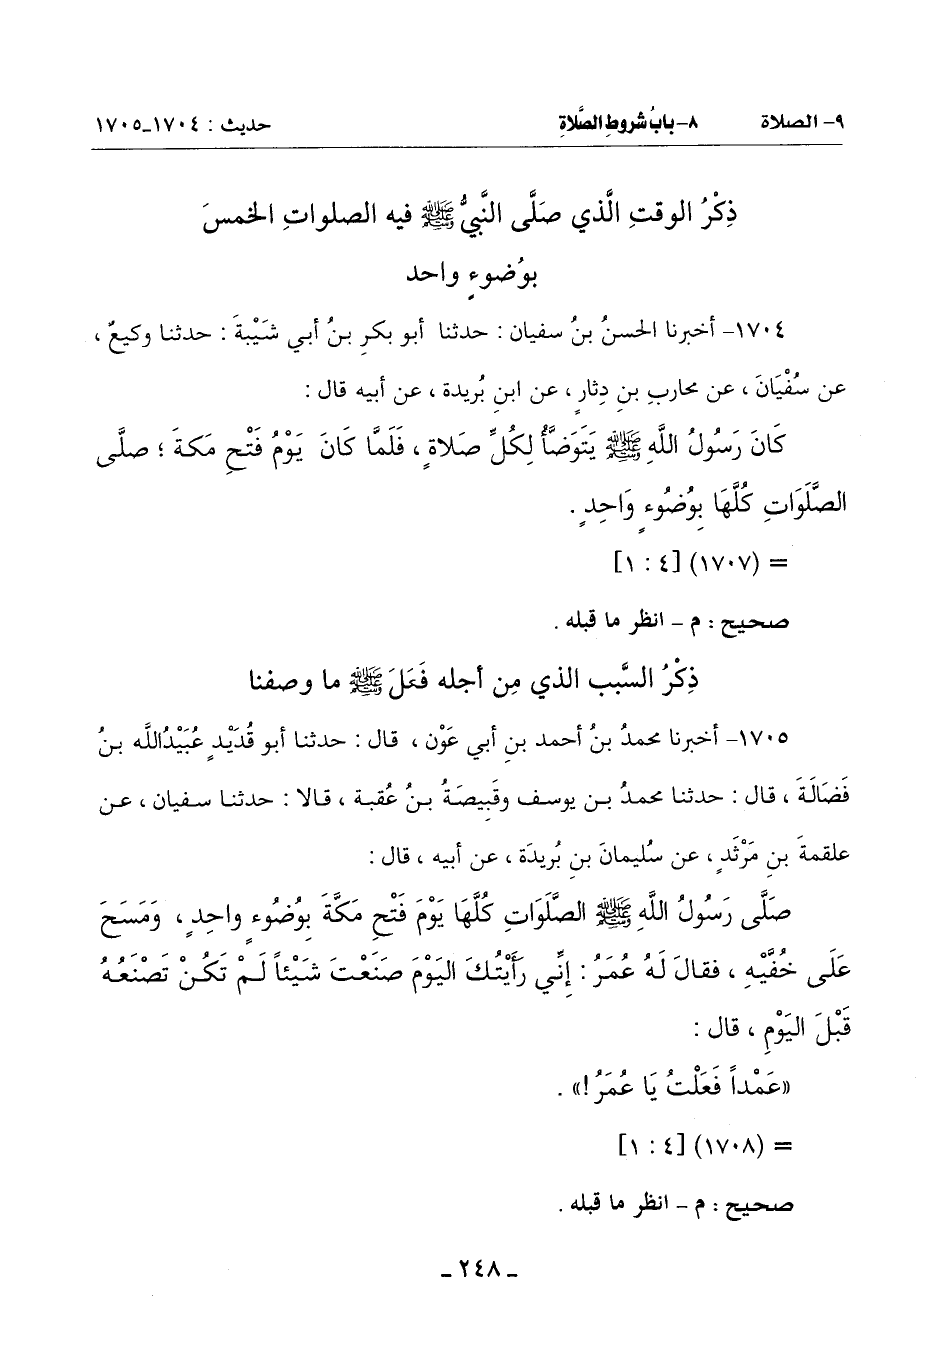 ٩- الصلاة ٨-بابُ شروطِ الصَّلاةِ حديث : ١٧٠٤-١٧٠٥
ذِكْرُ الوقتِ الَّذي صَلَّى النَّبيُّ ﷺ فيه الصلواتِ الخمسَ
بوُضوءٍ واحد
١٧٠٤- أخبرنا الحسنُ بنُ سفيان : حدثنا أبو بكرِ بنُ أبي شَيْبةَ : حدثنا وكيعٌ ،
عن سُفْيَانَ ، عن محاربِ بنِ دِثارٍ ، عن ابنِ بُريدة ، عن أبيه قال :
كَانَ رَسُولُ اللَّهِ ﷺ يَتَوَضَّأُ لِكُلِّ صَلاة ٍ ، فَلَمَّا كَانَ يَوْمُ فَتْحِ مَكةَ ؛ صلَّى
الصَّلَوَاتِ كُلَّهَا بِوُضُوءٍ وَاحِدٍ .
= (١٧٠٧) [٤ : ١]
صحيح : م - انظر ما قبله .
ذِكْرُ السَّبب الذي مِن أجله فَعَلَ ﷺ ما وصفنا
١٧٠٥- أخبرنا محمدُ بنُ أحمد بنِ أبي عَوْن ، قال : حدثنا أبو قُدَيْدٍ عُبَيْدُاللَّه بنُ
فَضَالَةَ ، قال : حدثنا محمدُ بـن يوسف وقَبِيصَةُ بـنُ عُقبة ، قـالا : حدثنـا سـفيان ، عـن
علقمةَ بنِ مَرْثَدٍ ، عن سُليمانَ بنِ بُريدَة ، عن أبيه ، قال :
صَلَّى رَسُولُ اللَّهِ ﷺ الصَّلَوَاتِ كُلَّهَا يَوْمَ فَتْحِ مَكَّةَ بِوُضُوءٍ واحِدٍ ، وَمَسَحَ
عَلَى خُفَّيْهِ ، فقالَ لَهُ عُمَرُ : إِنِّي رَأَيْتُكَ اليَوْمَ صَنَعْتَ شَيْئاً لَـمْ تَكُـنْ تَصْنَعُـهُ
قَبْلَ اليَوْمِ ، قال :
«عَمْداً فَعَلْتُ يَا عُمَرُ!» .
= (١٧٠٨) [٤ : ١]
صحيح : م - انظر ما قبله .
- ٢٤٨ -